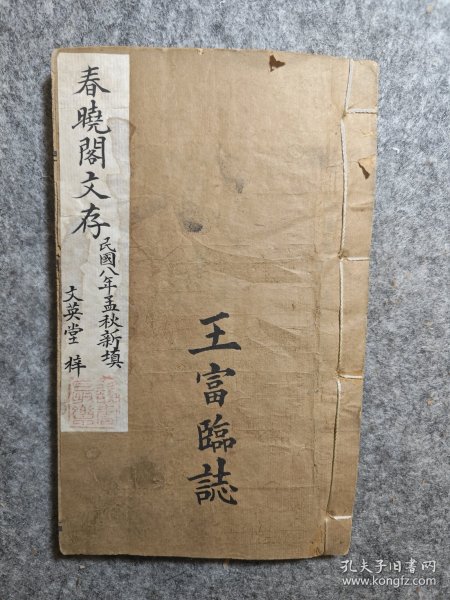 春曉閣文存
民國八年孟秋新填
文英堂 梓
王富臨誌
孔夫子旧书网
www.kongfz.com